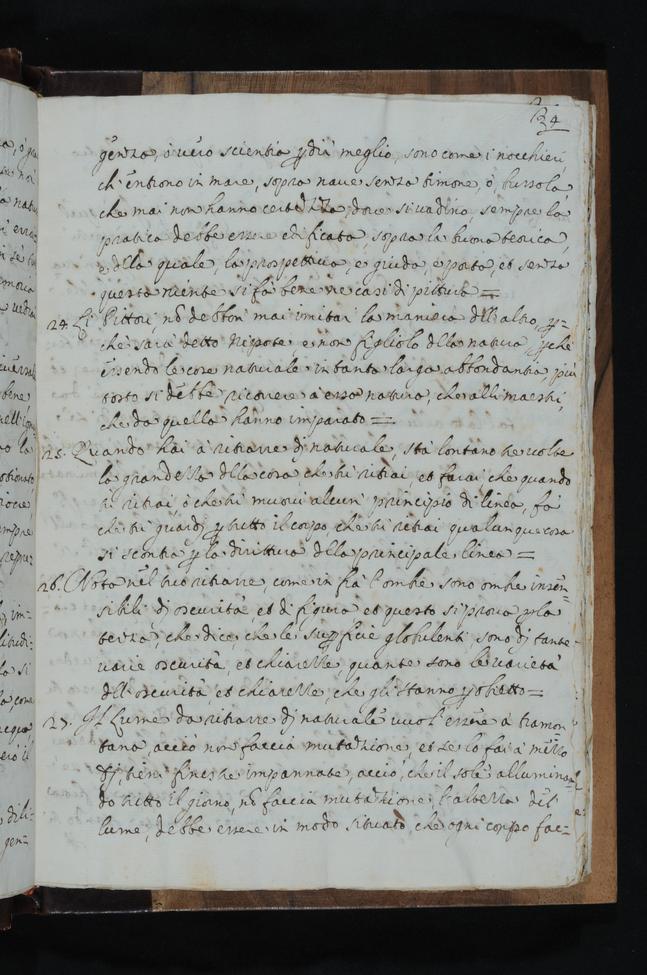 134
genza, o vero scientia p dir meglio, sono come i nocchieri,
ch'entrono in mare, sopra nave senza timone, o bussola,
che mai non hanno certezza, dove si vadino, sempre la
pratica debbe essere edificata, sopra la buona teorica,
e dlla quale, la prospettiva, e guida, e porta, et senza
questa niente si fà bene ne casi di pittura =
24. Li Pittori, nō debbon mai imitar la maniera dll'altro, p=
che sara detto Nipote e non figliolo dlla natura, pche
essendo le cose naturale in tanta larga abbondantia, piu
tosto si debbe ricorrere à essa natura, che alli maestri,
che da quella hanno imparato =
25. Quando hai à ritrarre dj naturale, stà lontano tre volte
la grandezza dlla cosa che tu ritrai, et farai che quando
tu ritrai, ò che tu muovi alcun principio di linea, fà
che tu guardj p tutto il corpo, che tu ritrai qualunque cosa
si scontra p la dirittura dlla principale linea =
26. Nota nel tuo ritrarre, come in frà l'ombre sono ombre insen=
sibili dj oscurità et di figura et questo si prova p la
terza, che dice, che le supficie globulenti, sono dj tante
varie oscurità, et chiarezze quante sono le varietà
dlle oscurità, et chiarezze, che gli stanno p obietto =
27. Il Lume da ritrarre dj naturale vuol' essere à tramon=
tana, acciò non faccia mutazione, et se lo fai à mezzo
dj, tieni finestre impannate, acciò, che il sole allumina
do tutto il giorno, nō faccia mutazione l'altezza del
lume, debbe essere in modo situato, che ogni corpo fac=